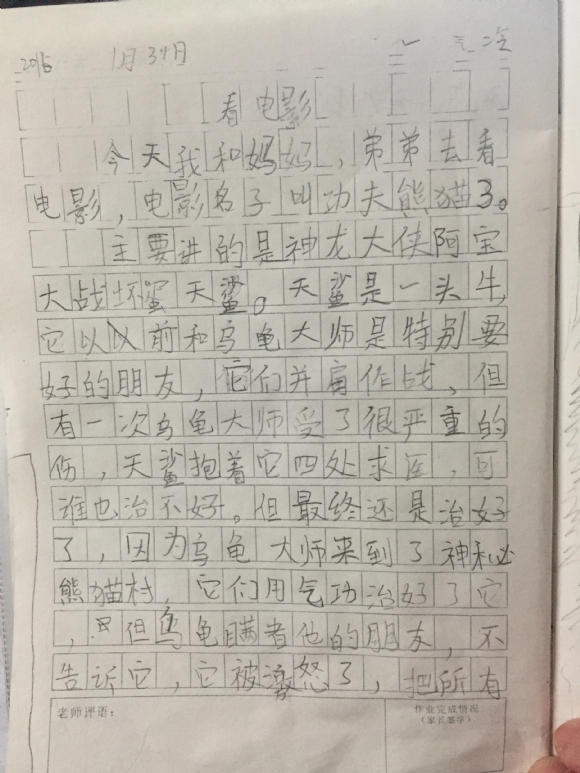 2016 1月31日
看电影
今天我和妈妈,弟弟去看
电影,电影名子叫功夫熊猫3。
主要讲的是神龙大侠阿宝
大战坏蛋天鲨。天鲨是一头牛,
它以以前和乌龟大师是特别要
好的朋友,它们并肩作战,但
有一次乌龟大师受了很严重的
伤,天鲨抱着它四处求医,可
谁也治不好。但最终还是治好
了,因为乌龟大师来到了神秘
熊猫村,它们用气功治好了它
,但乌龟瞒者他的朋友,不
告诉它,它被激怒了,把所有
老师评语:
作业完成情况
(家长签字)